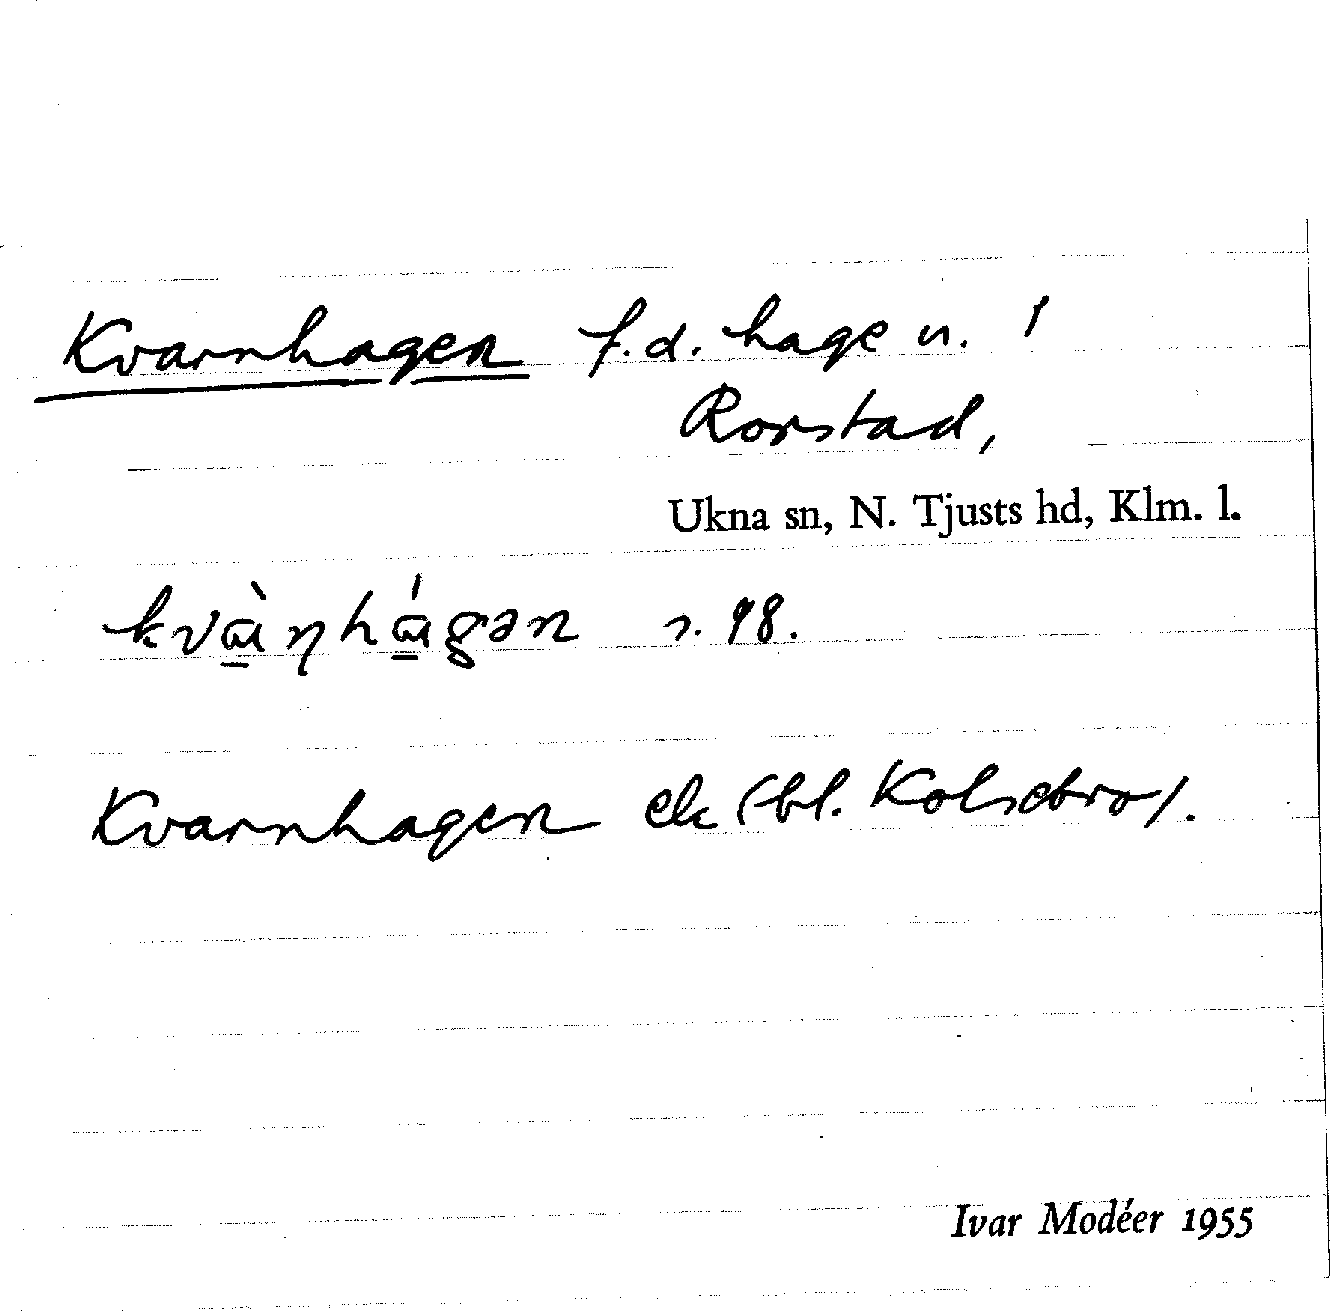 Kvarnhagen f.d. hage u. /
Rorstad,
Ukna sn, N. Tjusts hd, Klm. l.
kvɑ̀ɳhɑ́gən s. 98.
Kvarnhagen ek (bl. Kolsebro).
Ivar Modéer 1955